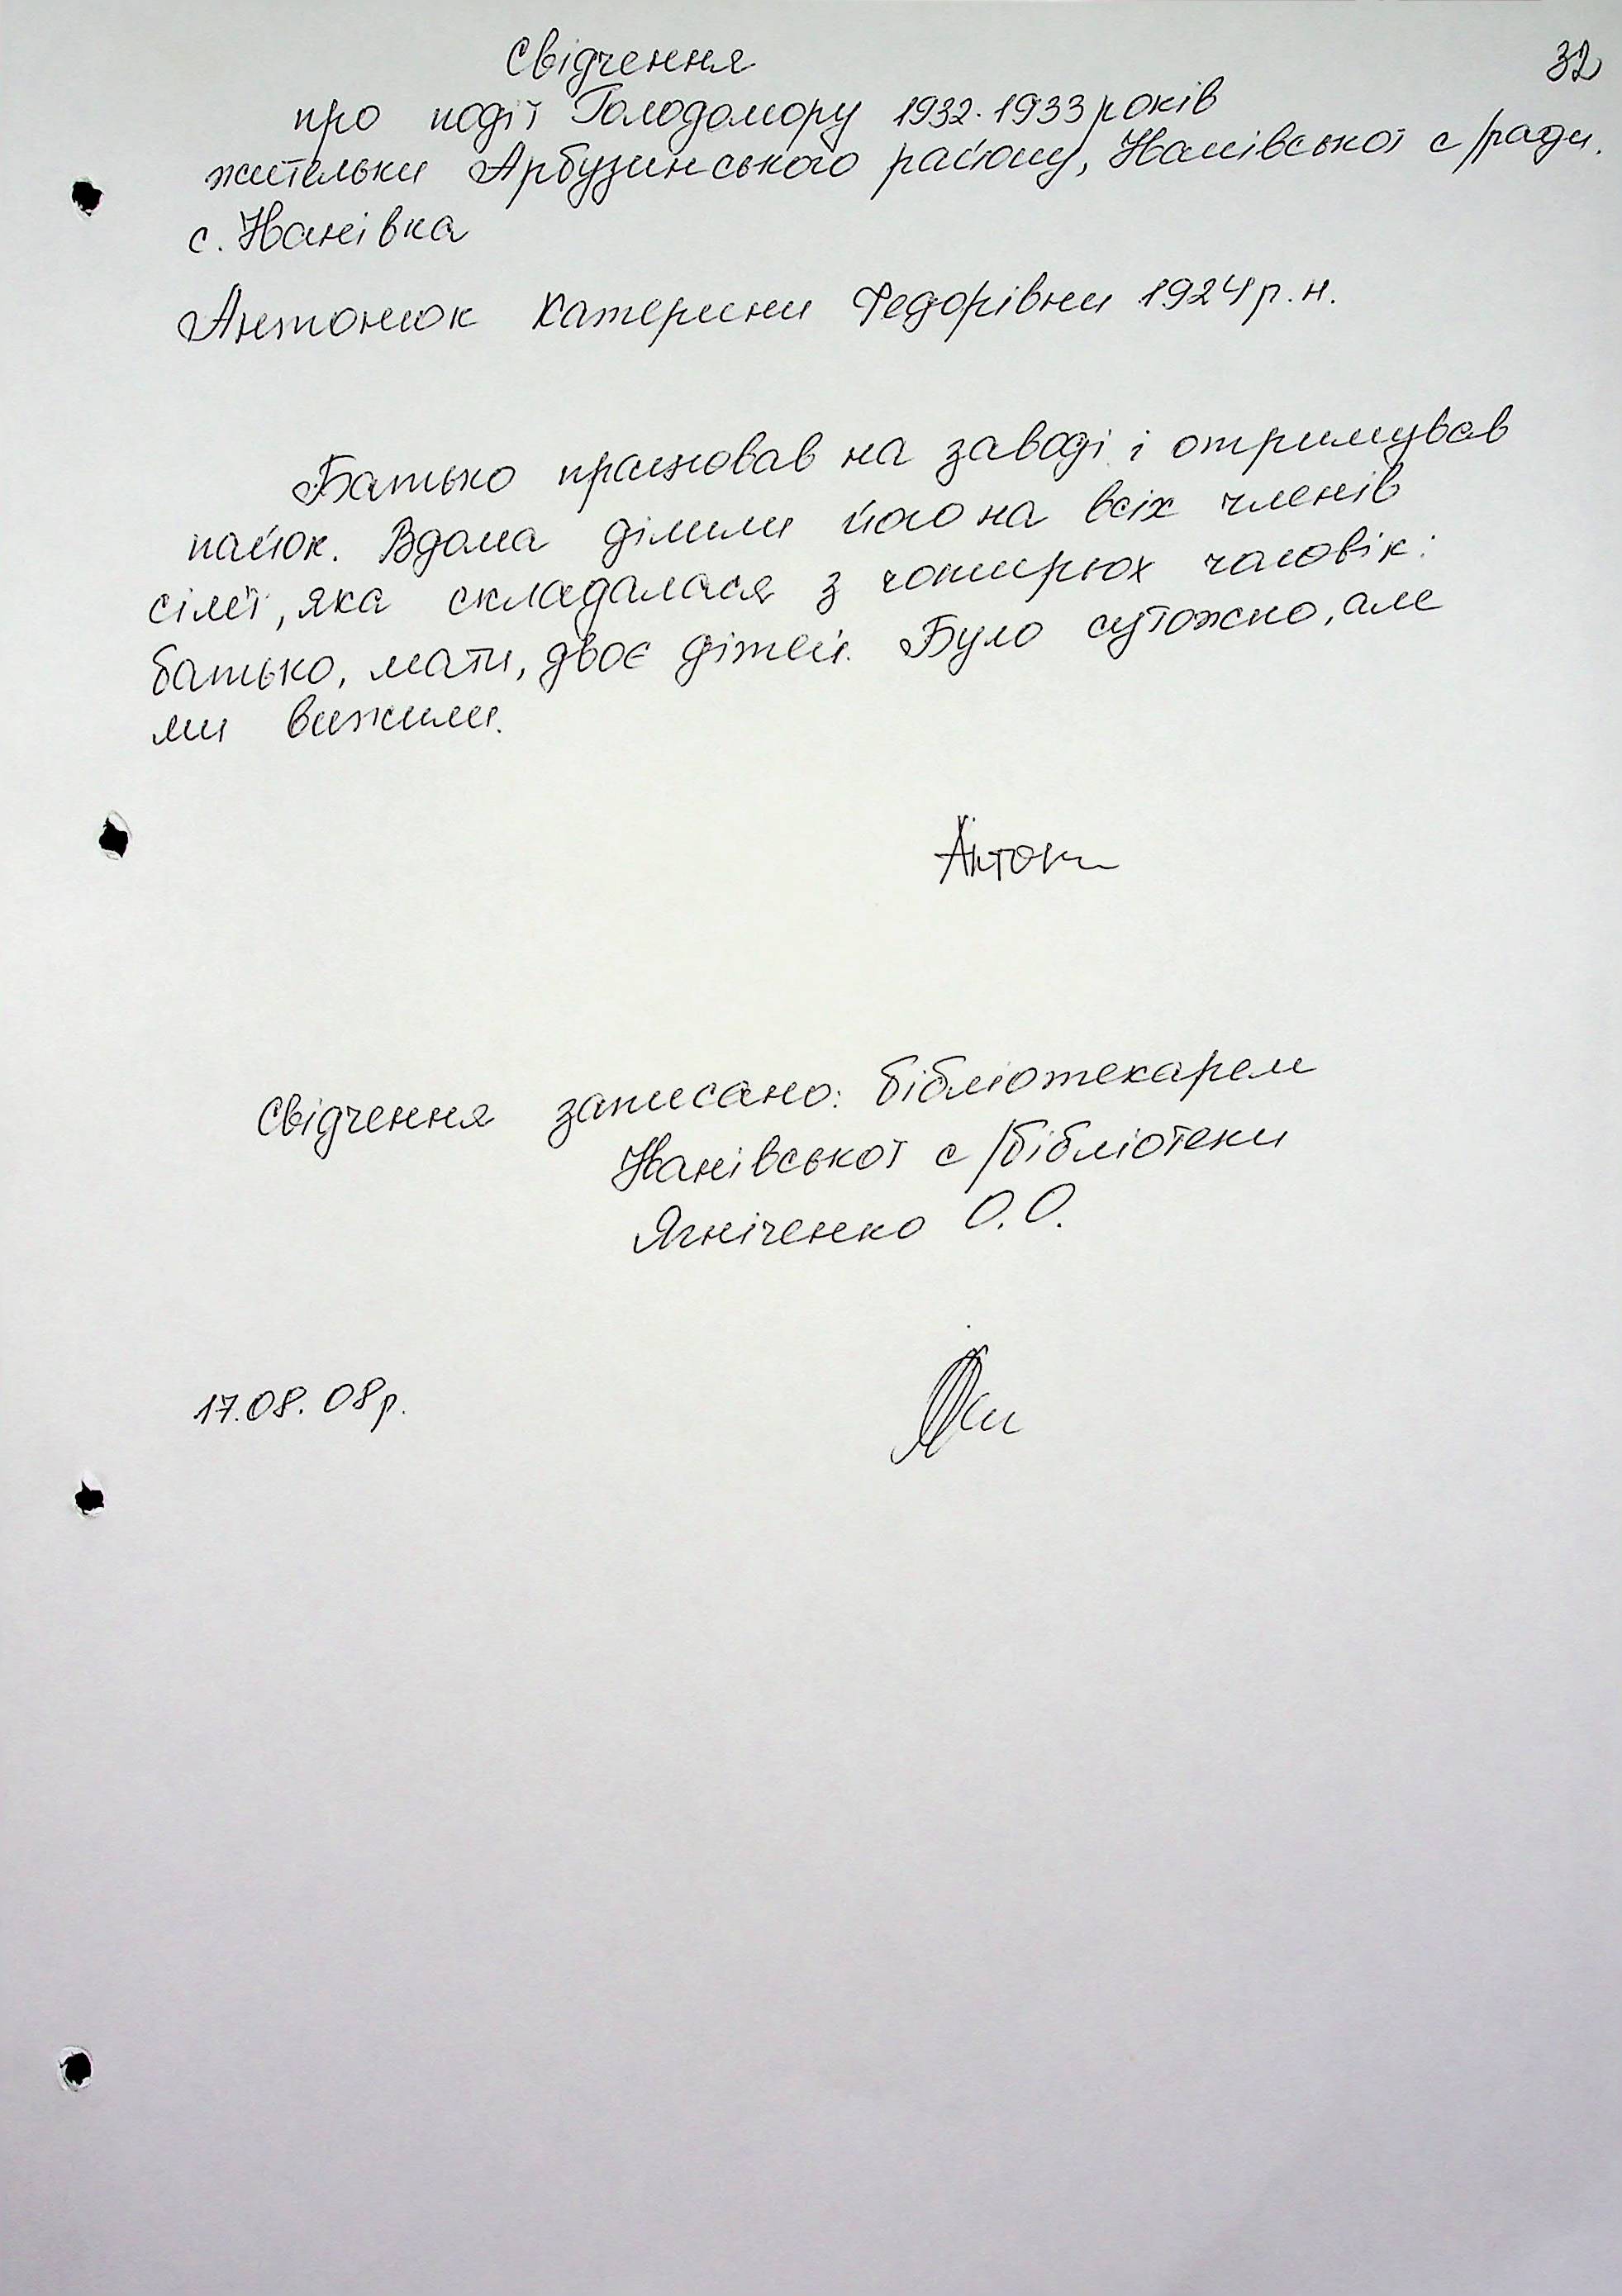 32
Свідчення
про події Голодомору 1932-1933 років
жительки Арбузинського району, Іванівської с/ради.
с. Іванівка
Антонюк Катерини Федорівни 1924 р.н.
Батько працював на заводі і отримував
пайок. Вдома ділили його на всіх членів
сімї, яка складалася з чотирьох чоловік:
батько, мати, двоє дітей. Було сутужно, але
ми вижили.
Антон
Свідчення записано: бібліотекарем
Іванівської с/бібліотеки
Ягніченко О.О.
17.08.08р.